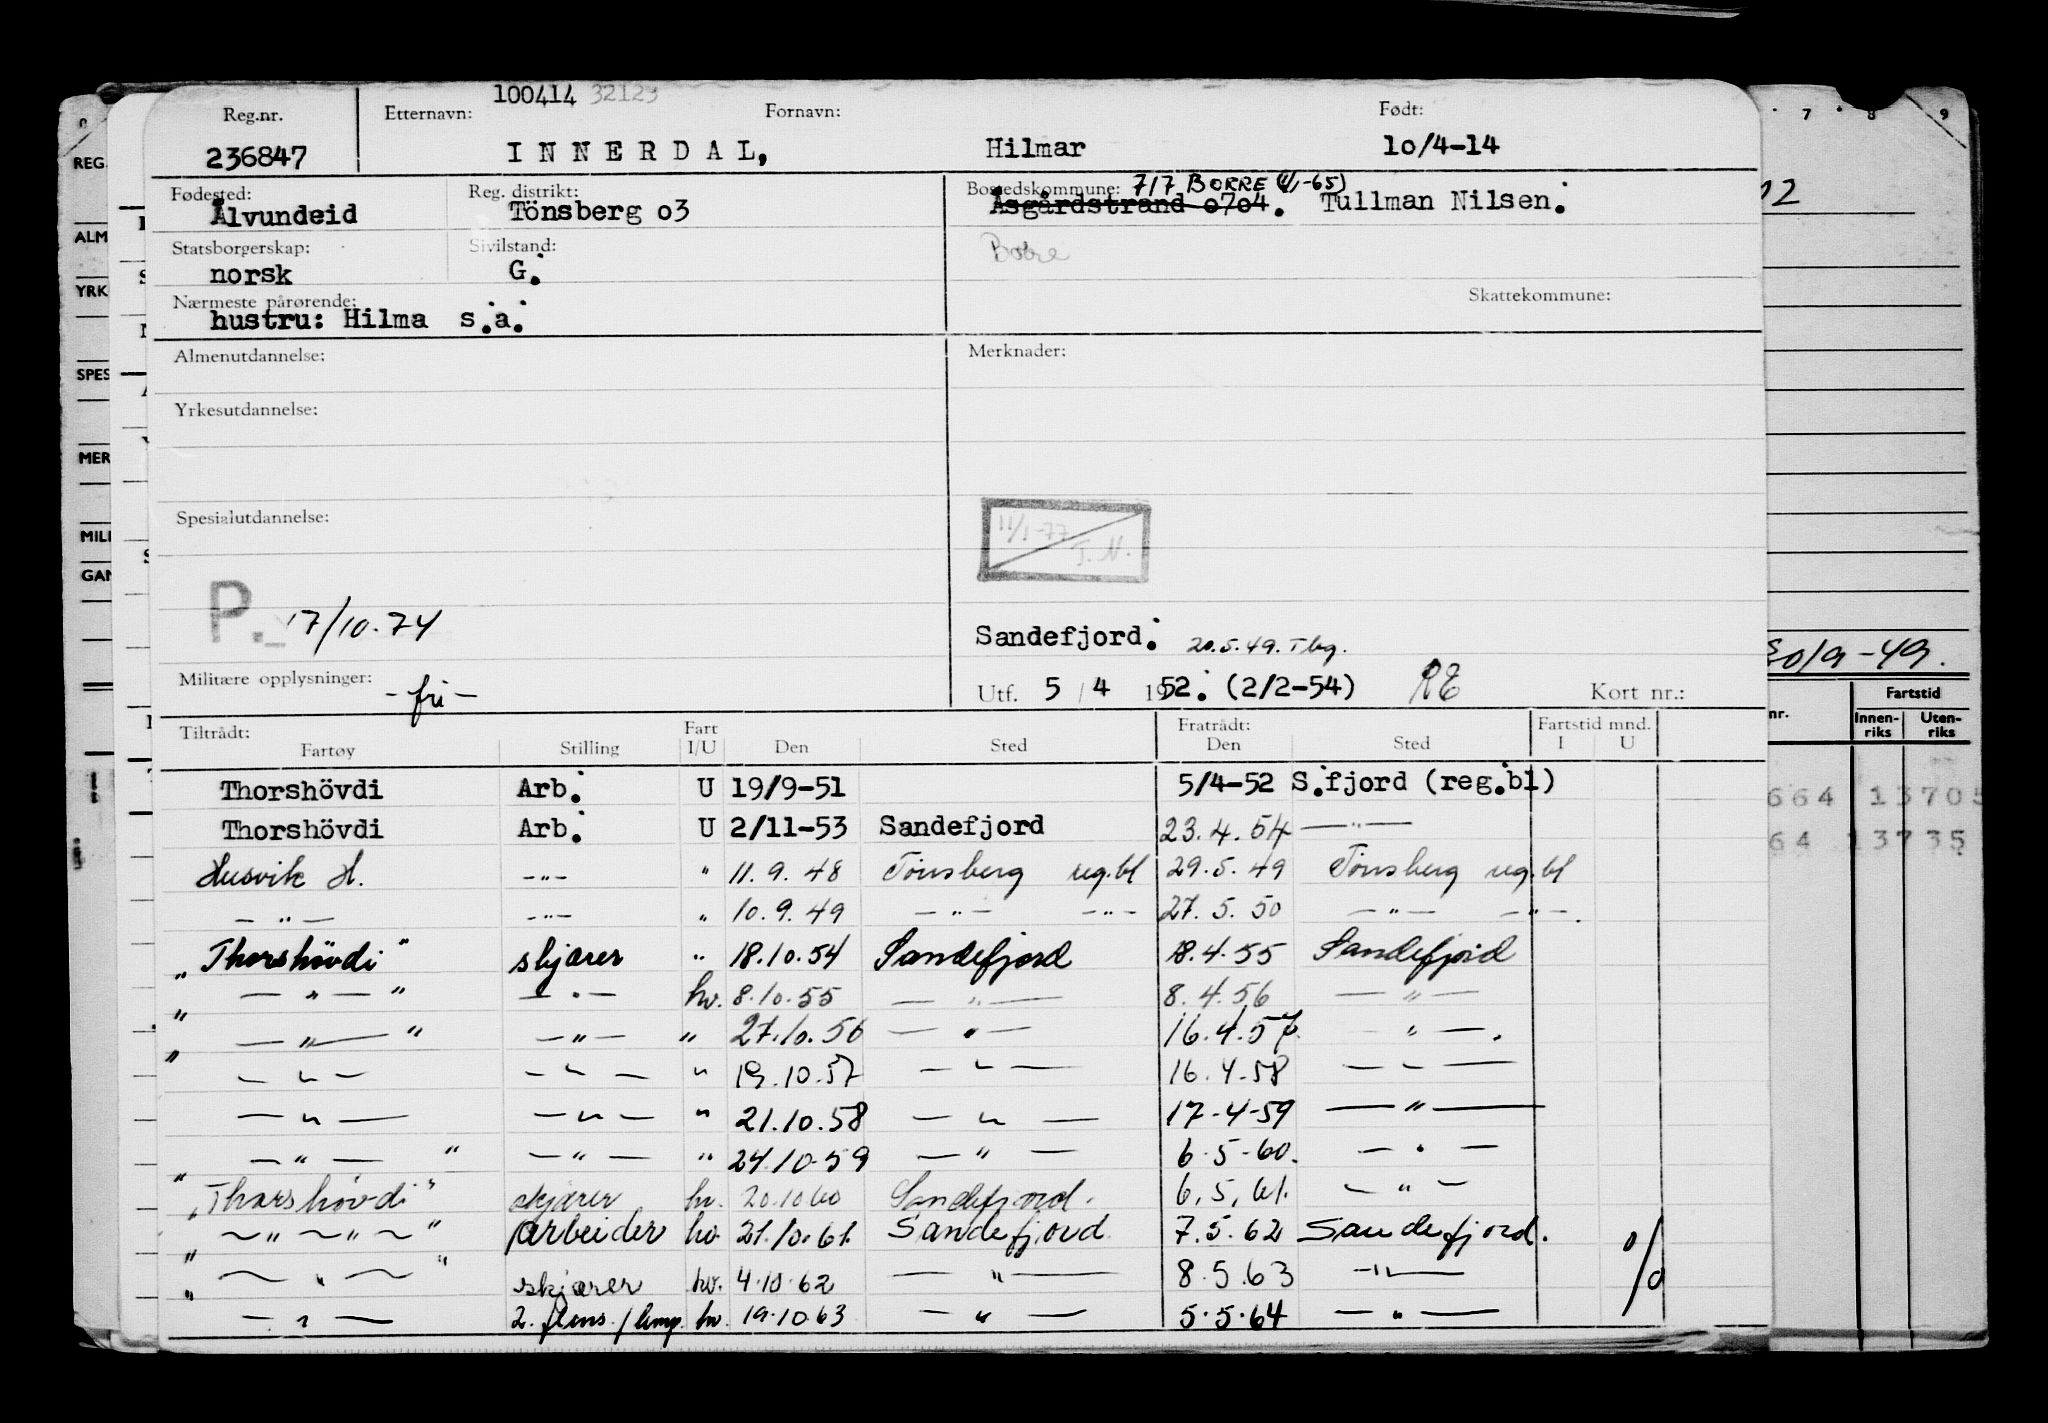 100414 32123
Reg.nr. Etternavn: Fornavn: Født:
236847 INNERDAL, Hilmar 10/4-14
Fødested: Reg. distrikt: Bostedskommune: 717 BORRE (1/1-65)
Ålvundeid Tönsberg o3 Åsgårdstrand o7o4. Tullman Nilsen.
Statsborgerskap: Sivilstand: Borre
norsk G.
Nærmeste pårørende: Skattekommune:
hustru: Hilma s.a.
Almenutdannelse: Merknader:
Yrkesutdannelse:
Spesialutdannelse: 11/1-77 T.N.
P. 17/10.74
Sandefjord. 20.5.49. Tbg.
Militære opplysninger: -fri-
Utf. 5 / 4 1952. (2/2-54) RE Kort nr.:
Tiltrådt: Fart Fratrådt: Fartstid mnd.
Fartøy Stilling I/U Den Sted Den Sted I U
Thorshövdi Arb. U 19/9-51 5/4-52 S.fjord (reg.bl)
Thorshövdi Arb. U 2/11-53 Sandefjord 23.4.54 —"—
Husvik H. -"- " 11.9.48 Tönsberg reg.bl 29.5.49 Tönsberg reg.bl
—"— -"- " 10.9.49 —"— -"- 27.5.50 —"— -"-.
"Thorshövdi" skjærer " 18.10.54 Sandefjord 18.4.55 Sandefjord
"—"—" —"— hv. 8.10.55 —"— 8.4.56 —"—
"—"—" —"— " 27.10.56 —"— 16.4.57. —"—.
"—"— —"— " 19.10.57 —"— 16.4.58 —"—
—"— —"— " 21.10.58 —"— 17-4-59 —"—
—"—" —"— " 24.10.59 —"— 6.5-60. —"—
"Thorshövdi" skjærer hv. 20.10 60 Sandefjord. 6.5.61. —"—
"~"~"~" arbeider hv. 21.10.61. Sandefjord. 7.5.62 Sandefjord.
"~"~" skjærer hv. 4.10.62 —"— 8.5.63 —"—
"—"— 2. flens./lemp. hv 19.10 63 —"— 5.5.64 —"—
0/0
7 8 9
REG.
ALM
YRK
SPES
MER
MILI
GAN
20/9-49.
Fartstid
nr. Innen-riks Uten-riks
664 13705
64 13735